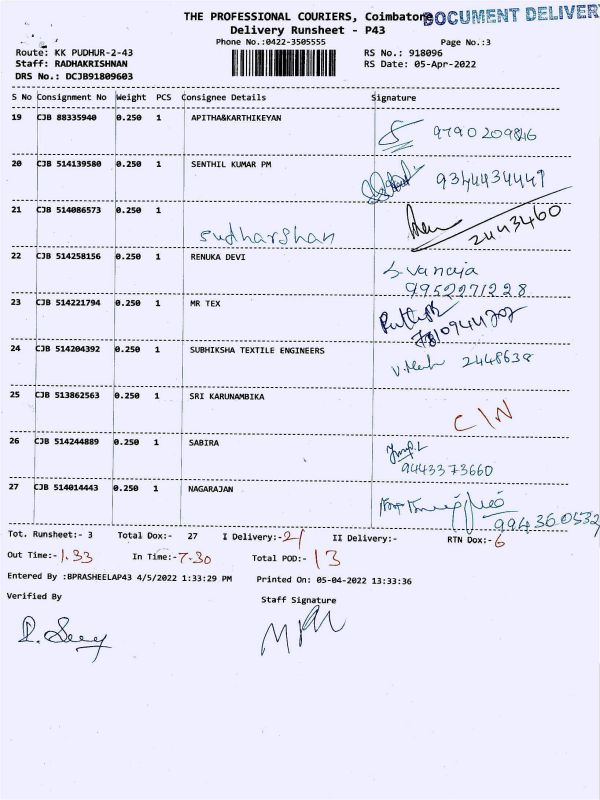 THE PROFESSIONAL COURIERS, Coimbatore
DOCUMENT DELIVER
Delivery Runsheet - P43
Phone No.:0422-3505555 Page No.:3
Route: KK PUDHUR-2-43 RS No.: 918096
Staff: RADHAKRISHNAN RS Date: 05-Apr-2022
DRS No.: DCJB91809603
S No Consignment No Weight PCS Consignee Details Signature
19 CJB 88335940 0.250 1 APITHA&KARTHIKEYAN
9790209846
20 CJB 514139580 0.250 1 SENTHIL KUMAR PM
9344434449
21 CJB 514086573 0.250 1
Sudharshan 2443460
22 CJB 514258156 0.250 1 RENUKA DEVI
S. Vanaja
9952271228
23 CJB 514221794 0.250 1 MR TEX
24 CJB 514204392 0.250 1 SUBHIKSHA TEXTILE ENGINEERS
2448638
25 CJB 513862563 0.250 1 SRI KARUNAMBIKA
C/N
26 CJB 514244889 0.250 1 SABIRA
9443373660
27 CJB 514014443 0.250 1 NAGARAJAN
9943605327
Tot. Runsheet:- 3 Total Dox:- 27 I Delivery:-21 II Delivery:- RTN Dox:-6
Out Time:-1.33 In Time:-7.30 Total POD:-13
Entered By :BPRASHEELAP43 4/5/2022 1:33:29 PM Printed On: 05-04-2022 13:33:36
Verified By Staff Signature